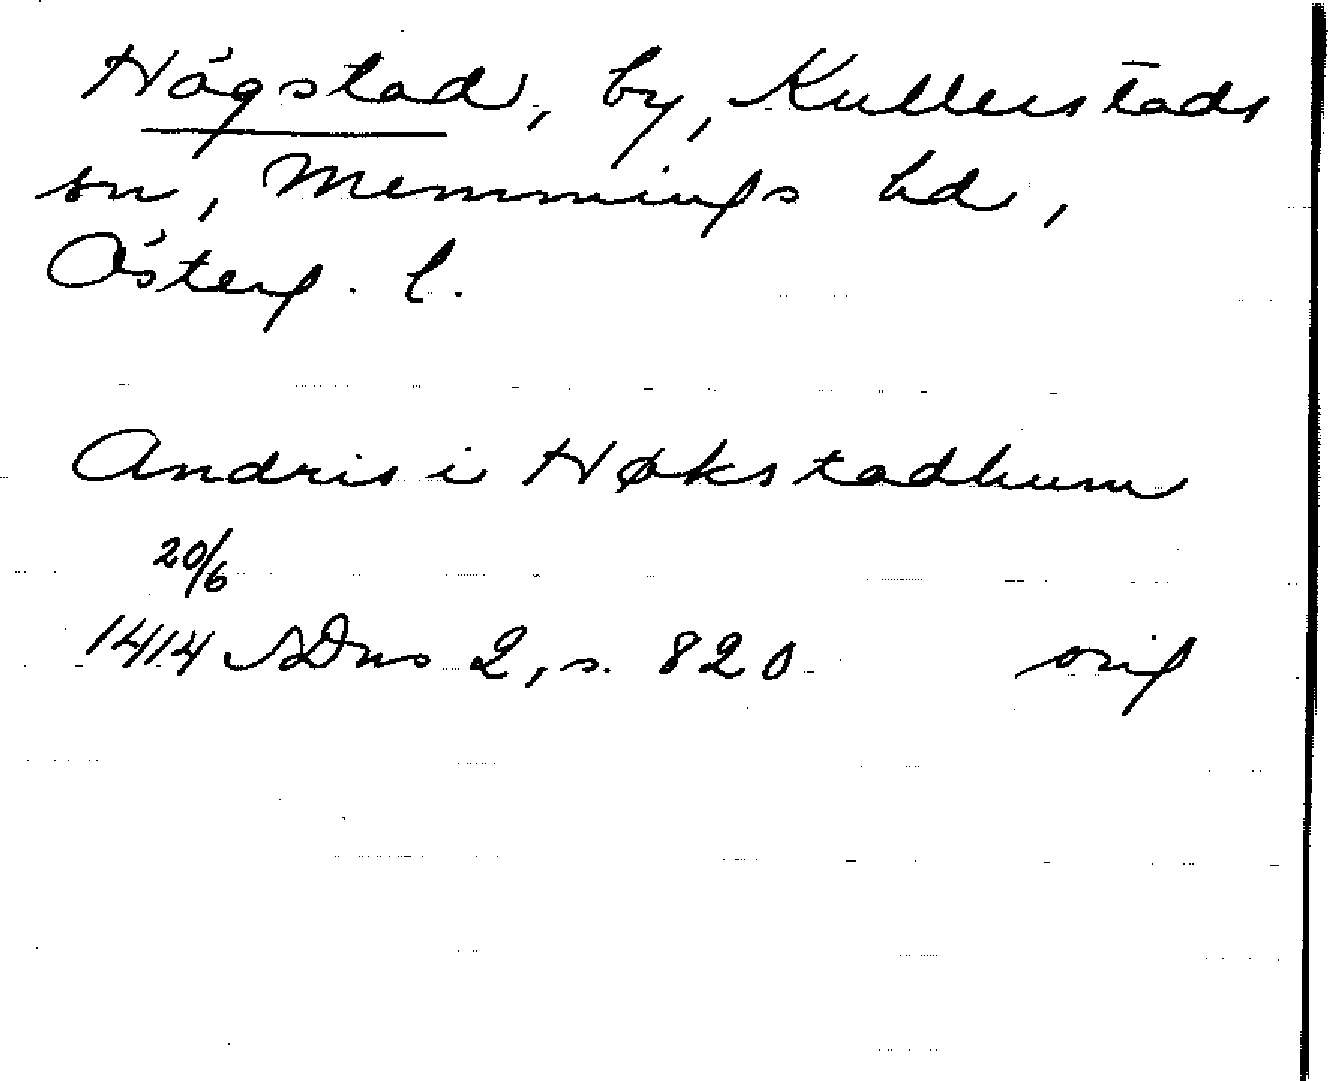 Högstad, by, Kullerstads
sn, Memmings hd,
Österg. l.
Andris i Høkstadhum
20/6
1414 SDns 2, s. 820 orig